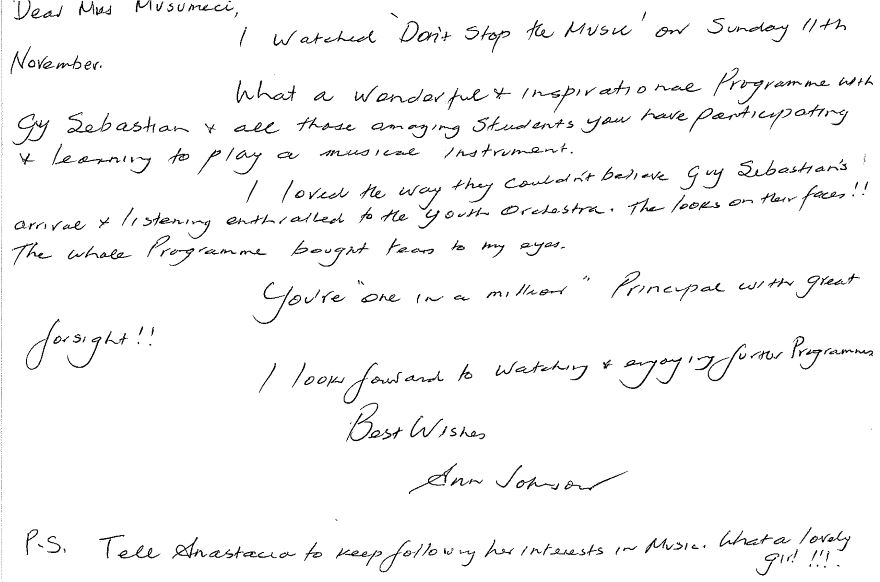 Dear Mrs Musumeci,
I watched 'Don't Stop the Music' on Sunday 11th
November.
What a wonderful & inspirational Programme with
Guy Sebastian & all those amazing Students you have participating
& learning to play a musical instrument.
I loved the way they couldn't believe Guy Sebastian's
arrival & listening enthralled to the Youth Orchestra. The looks on their faces!!
The whole Programme bought tears to my eyes.
You're "one in a million" Principal with great
forsight!!
I look forward to watching & enjoying further Programmes
Best Wishes
Ann Johnson
P.S. Tell Anastacia to keep following her interests in Music. What a lovely
girl !!!